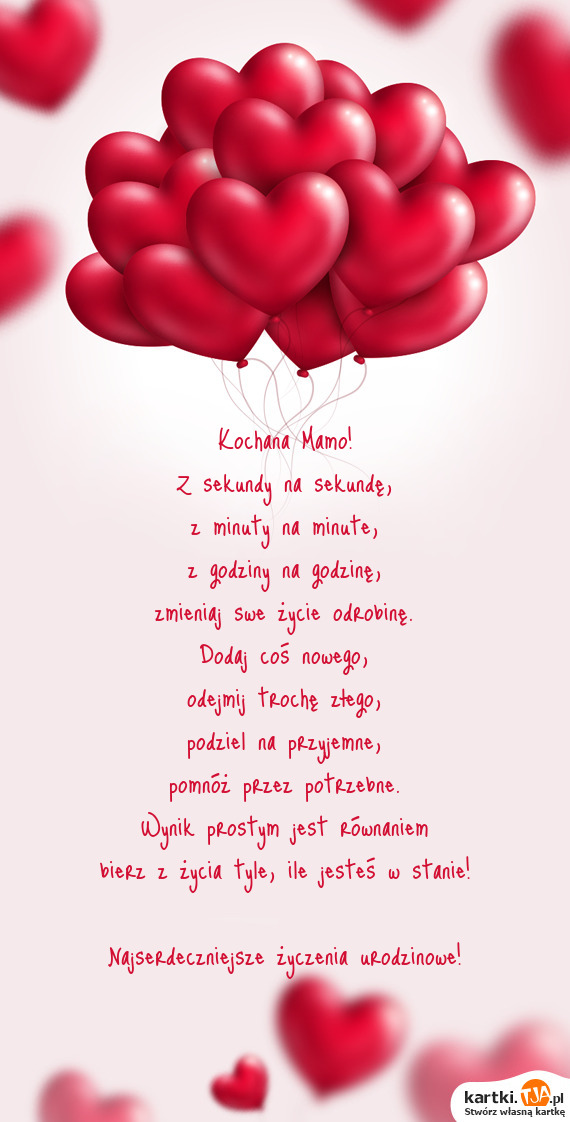 Kochana Mamo!
Z sekundy na sekundę,
z minuty na minute,
z godziny na godzinę,
zmieniaj swe życie odrobinę.
Dodaj coś nowego,
odejmij trochę złego,
podziel na przyjemne,
pomnóż przez potrzebne.
Wynik prostym jest równaniem
bierz z życia tyle, ile jesteś w stanie!
Najserdeczniejsze życzenia urodzinowe!
kartki.TJA.pl
Stwórz własną kartkę